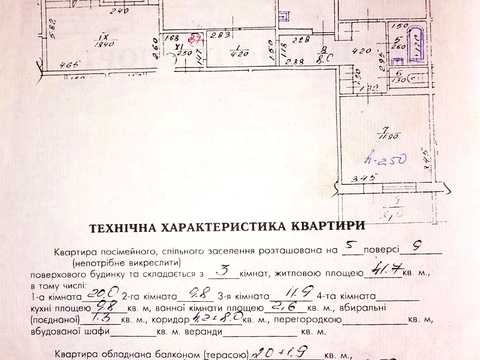 240
5.82
IX
18.40
465
2.60
168
XI
2.50
1.47
283
1
4.20
1.18
238
8
8.0
420
150
5
2.60
170
6
1.30
2.95
7
11.90
h-2.50
345
3.45
ТЕХНІЧНА ХАРАКТЕРИСТИКА КВАРТИРИ
Квартира посімейного, спільного заселення розташована на 5 поверсі 9
(непотрібне викреслити)
поверхового будинку та складається з 3 кімнат, житловою площею 41.7 кв. м.,
в тому числі:
1-а кімната 20,0 2-га кімната 9.8 3-я кімната 11.9 4-та кімната
кухні площею 9,8 кв. м, ванної кімнати площею 2,6 кв. м., вбиральні
(поєднаної) 1.3 кв. м., коридор 4,2+8.0 кв. м., перегородкою кв. м.,
вбудованої шафи кв. м. веранди кв. м.
Квартира обладнана балконом (терасою) 20+1.9 кв. м.